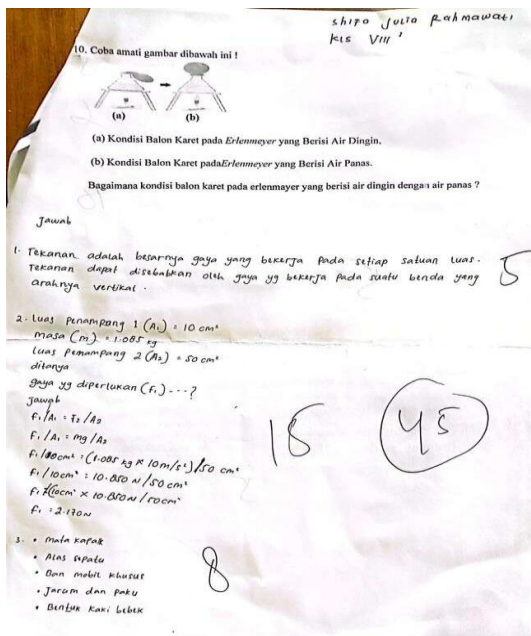 shipo Julia Rahmawati
kls VIII
10. Coba amati gambar dibawah ini !
(a) (b)
(a) Kondisi Balon Karet pada Erlenmeyer yang Berisi Air Dingin.
(b) Kondisi Balon Karet padaErlenmeyer yang Berisi Air Panas.
Bagaimana kondisi balon karet pada erlenmayer yang berisi air dingin dengan air panas ?
Jawab
1. Tekanan adalah besarnya gaya yang bekerja pada setiap satuan luas.
Tekanan dapat disebabkan oleh gaya yg bekerja pada suatu benda yang
arahnya vertikal.
5
2. Luas penampang 1 (A₁) = 10 cm²
masa (m) = 1.085 kg
luas penampang 2 (A₂) = 50 cm²
ditanya
gaya yg diperlukan (F₁) ---?
Jawab
F₁/A₁ = F₂/A₂
F₁/A₁ = mg/A₂
F₁/10cm² = (1.085 kg x 10m/s²)/50 cm²
F₁/10cm² = 10.850 N/50 cm²
F₁ = (10cm² x 10.850N/50cm²
F₁ = 2.170N
15
45
3. • mata kapak
• Alas sepatu
• Ban mobil khusus
• Jarum dan paku
• Bentuk kaki bebek
8